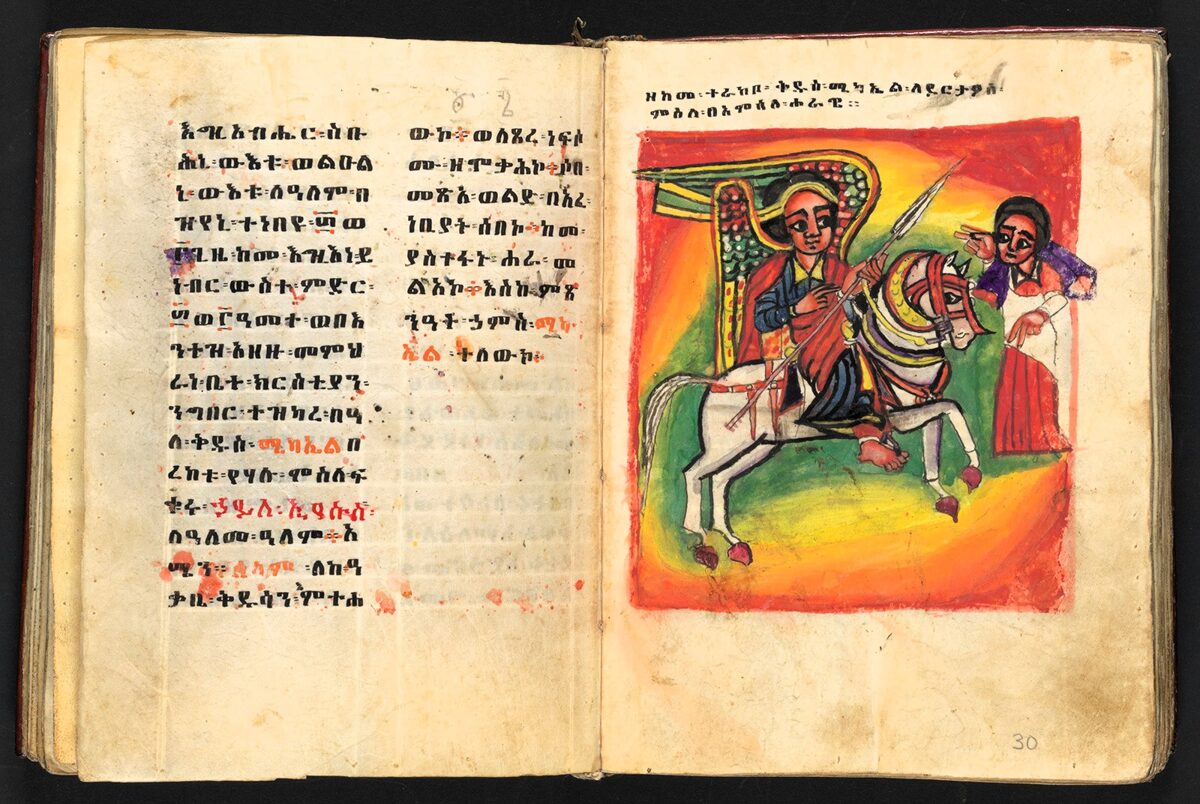 እግዚአብሔር፡ስቡ
ሕኒ፡ውእቱ፡ወልዑል
ኒ፡ውእቱ፡ለዓለም፡በ
ዝየኒ፡ተነበዩ፡፴ወ
፫ጊዜ፡ከመ፡እግዚእነ፡ይ
ነብር፡ውስተ፡ምድር፡
፴ወ፫ዓመተ፡ወበእ
ንተዝ፡አዘዙ፡መምህ
ራነ፡ቤተ፡ክርስቲያን፡
ንግበር፡ተዝካረ፡በዓ
ለ፡ቅዱስ፡ሚካኤል፡በ
ረከቱ፡የሃሉ፡ምስለ፡ፍ
ቁሩ፡ኃይለ፡ኢየሱስ፡
ለዓለመ፡ዓለም፡አ
ሜን፡ሰላም፡ለከዓ
ቃቢ፡ቅዱሳን፡ምተሐ
ውኮ፡ወለጸረ፡ነፍሶ
ሙ፡ዘሞታሕኮ፡ሶበ፡
መጽአ፡ወልድ፡በአረ፡
ነቢያት፡ሰበኮ፡ከመ፡
ያስተፋኑ፡ሐራ፡መ
ልአኮ፡እስከ፡ምጽ
ንዓቶ፡ኃምስ፡ሚካ
ኤል፡ተለውኮ፡
ዘከመ፡ተራከቦ፡ቅዱስ፡ሚካኤል፡ለዶርታዎስ፡
ምስለ፡በአምሰለ፡ሐራዊ፡፡
30